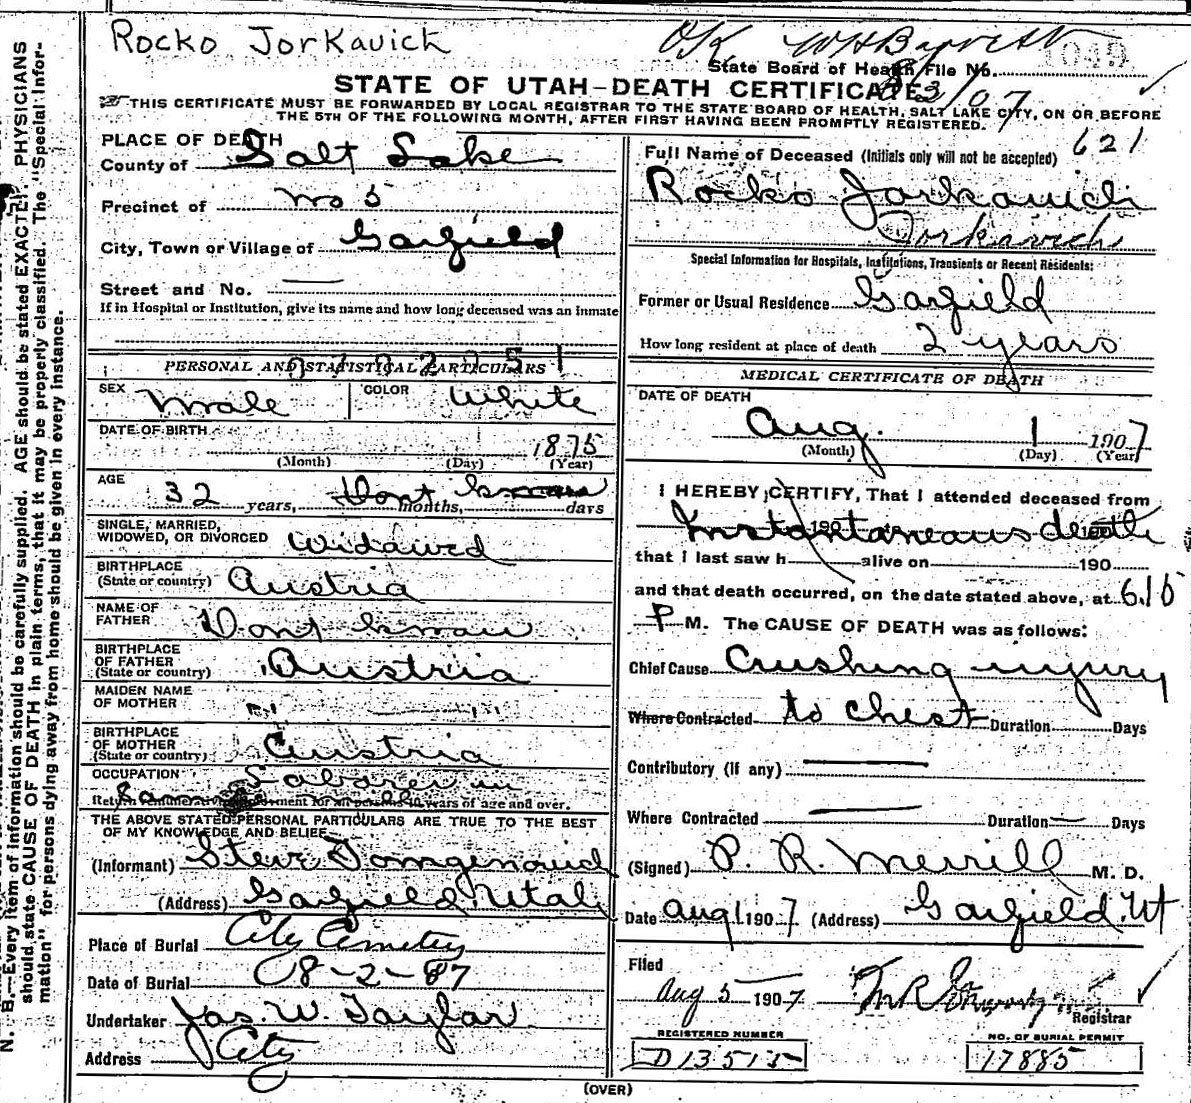 Rocko Jorkavich
OK
1049
State Board of Health File No.
8/3/07
STATE OF UTAH–DEATH CERTIFICATE
THIS CERTIFICATE MUST BE FORWARDED BY LOCAL REGISTRAR TO THE STATE BOARD OF HEALTH, SALT LAKE CITY, ON OR BEFORE
THE 5TH OF THE FOLLOWING MONTH, AFTER FIRST HAVING BEEN PROMPTLY REGISTERED.
PLACE OF DEATH
County of Salt Lake
Precinct of No 5
City, Town or Village of Garfield
Street and No. —
If in Hospital or Institution, give its name and how long deceased was an inmate
PERSONAL AND STATISTICAL PARTICULARS
SEX Male COLOR White
DATE OF BIRTH 1875
(Month) (Day) (Year)
AGE 32 years, Dont know months, days
SINGLE, MARRIED,
WIDOWED, OR DIVORCED Widowed
BIRTHPLACE
(State or country) Austria
NAME OF
FATHER Dont know
BIRTHPLACE
OF FATHER
(State or country) Austria
MAIDEN NAME
OF MOTHER " "
BIRTHPLACE
OF MOTHER
(State or country) Austria
OCCUPATION Laborer
Return remunerative employment for all persons 10 years of age and over.
THE ABOVE STATED PERSONAL PARTICULARS ARE TRUE TO THE BEST
OF MY KNOWLEDGE AND BELIEF
(Informant) Steve
(Address) Garfield, Utah
Place of Burial City Cemetery
Date of Burial 8-2-07
Undertaker Jas. W. Taylor
Address City
621
Full Name of Deceased (Initials only will not be accepted)
Rocko Jorkavich
Jorkavich
Special Information for Hospitals, Institutions, Transients or Recent Residents:
Former or Usual Residence Garfield
How long resident at place of death 2 years
MEDICAL CERTIFICATE OF DEATH
DATE OF DEATH
Aug. 1 1907
(Month) (Day) (Year)
I HEREBY CERTIFY, That I attended deceased from
Instantaneous death
190 to 190
that I last saw h alive on 190
and that death occurred, on the date stated above, at 6.15
P M. The CAUSE OF DEATH was as follows:
Chief Cause Crushing injury
Where Contracted to chest Duration Days
Contributory (if any) —
Where Contracted — Duration — Days
(Signed) P. R. Merrill M. D.
Date Aug 1 1907 (Address) Garfield, Ut
Filed
Aug 5 1907
Registrar
REGISTERED NUMBER
D13515
NO. OF BURIAL PERMIT
17885
(OVER)
N. B.—Every item of information should be carefully supplied. AGE should be stated EXACTLY. PHYSICIANS
should state CAUSE OF DEATH in plain terms, that it may be properly classified. The "Special Infor-
mation" for persons dying away from home should be given in every instance.